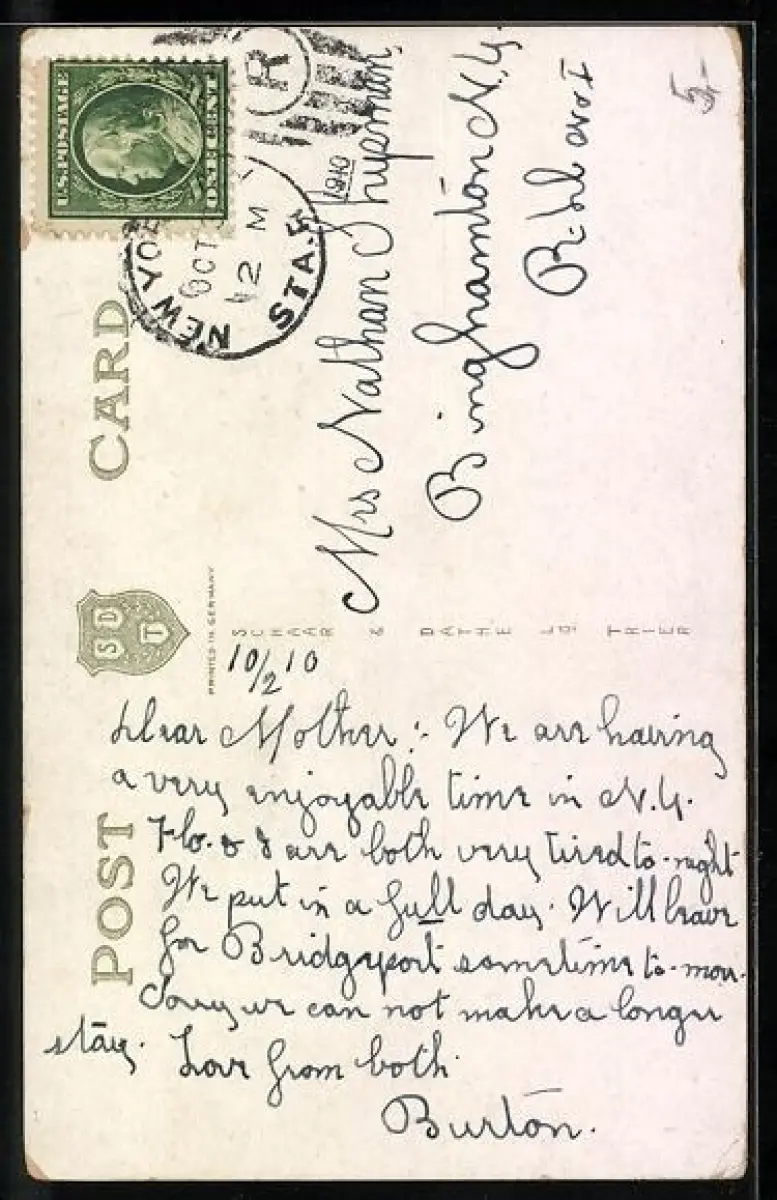 POST CARD
U.S. POSTAGE
ONE CENT
NEW YO
OCT
12 M
STA.
R
1910
5,-
Mrs Nathan
Binghamton N.Y.
S D T
PRINTED IN GERMANY
SCHAAR & DATHE TRIER
10/2 10
Dear Mother:- We are having
a very enjoyable time in N.Y.
Flo. & I are both very tired to-night
We put in a full day. Will leave
for Bridgeport sometime to-mor.
Sorry we can not make a longer
stay. Love from both.
Burton.